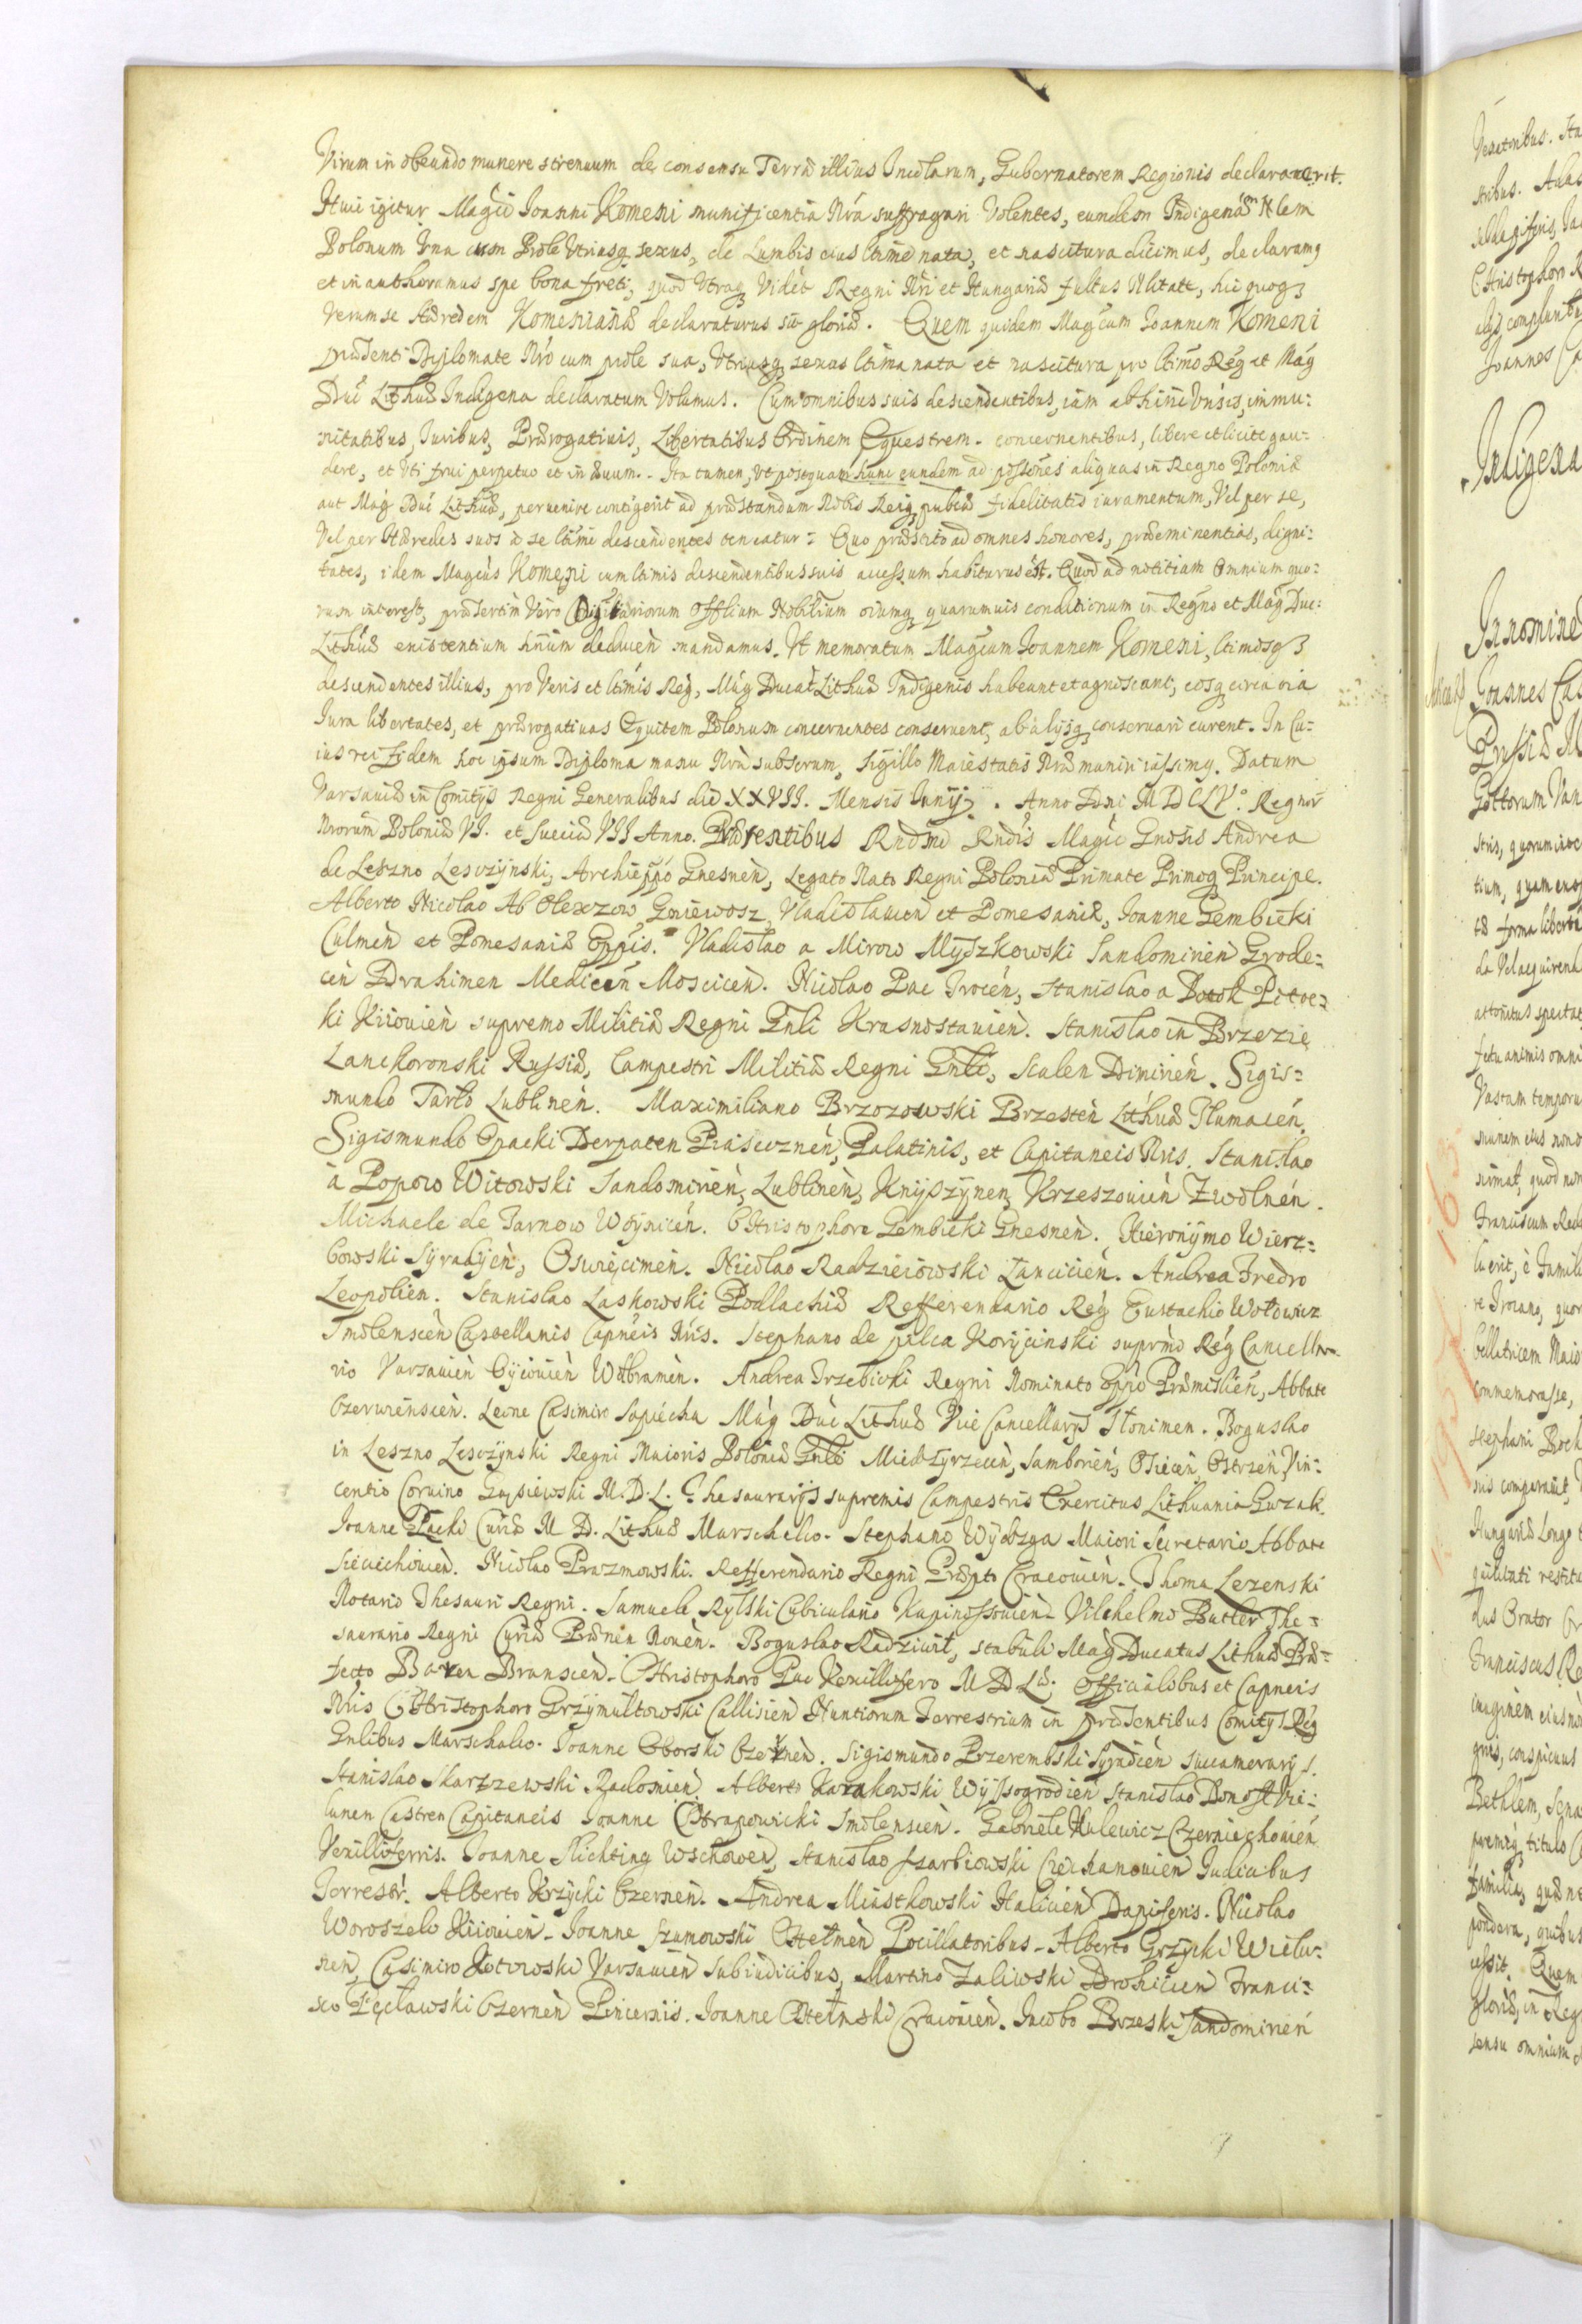 Virum in obeundo munere strenuum de consensu Terræ illius Incolarum, Gubernatorem Regionis declaraverit.
Huic igitur Magco Ioanni Komeni munificentia Nrâ suffragari Volentes, eundem Indigenam Nlem
Polonum Vna cum Prole Vtriusq sexus, de Lumbis eius ltime nata, et nascitura dicimus, declaramq
et in authoramus spe bona freti, quod Vtraq Vidèt Regni Nri et Hungariæ fultus Nlitate, hic quoq
Verum se Hæredem Komenianæ declaraturus sit gloriæ. Quem quidem Magcum Ioannem Komeni
præsenti Diplomate Nrô cum prole sua, Vtriusq sexus ltima nata et nascitura pro ltimo Reg et Mag
Duc Lithuæ Indigena declaratum Volumus. Cum omnibus suis descendentibus, iam abhinc Vnścis, immu:
nitatibus, Iuribus, Prærogativis, Libertatibus Ordinem Equestrem concernentibus, libere et licite gau:
dere, et Vti frui perpetuo et in æuum. Ita tamen, Vt postquam hunc eundem ad possones aliquas in Regno Poloniæ
aut Mag Duc Lithuæ, peruenire contigerit ad præstandum Nobis Reiq publcæ fidelitatis iuramentum, Vel per se,
Vel per Hæredes suos à se ltime descendentes teneatur: Quo præstito ad omnes honores, præeminentias, digni:
tates, idem Magcus Komeni cum ltimis descendentibus suis accessum habiturus est. Quod ad notitiam Omnium quo:
rum interest, præsertim Vero Dignitariorum Offlium Nobilium oiumq quarumuis conditionum in Regno et Mag Duc:
Lithuæ existentium hnum deducen mandamus. Vt memoratum Magcum Ioannem Komeni, ltimosq
descendentes illius, pro Veris et ltimis Reg, Mag Ducat Lithuæ Indigenis habeant et agnoscant, eosq circa oia
Iura libertates, et prærogatiuas Equitem Polonum concernentes conseruent, ab alijsq conseruari curent. In Cu:
ius rei fidem hoc ipsum Diploma manu Nrâ subscrum, sigillo Maiestatis Nræ muniri iussimq. Datum
Varsauiæ in Comitijs Regni Generalibus die XXVII. Mensis Iunij. Anno Dni MDCLVº. Regnor
Nrorum Poloniæ VI. et Sueciæ VII Anno. Præsentibus Rndmo Rndis Magcis Gnosis Andrea
de Leszno Lesczÿnski, Archieppô Gnesnen, Legato Nato Regni Poloniæ Primate Primoq Principe.
Alberto Nicolao Ab Olexzow Gniewosz, Vladislauien et Pomesaniæ, Ioanne Gembicki
Culmen et Pomesaniæ Eppis. Vladislao a Mirow Myszkowski Sandomirien Grode:
cen Drahimen Medicen Moscicen. Nicolao Pac Trocen, Stanislao a Potok Potoc:
ki Kiiouien supremo Militiæ Regni Gnli Krasnostauien. Stanislao in Brzezie
Lanckoronski Russiæ, Campestri Militiæ Regni Gnli, Scalen Dimirien. Sigis:
mundo Tarło Lublinen. Maximiliano Brzozowski Brzesten Lithuæ Tlumacen.
Sigismundo Opacki Derpaten Piasecznen, Palatinis, et Capitaneis Nris. Stanislao
à Popow Witowski Sandomirien, Lublinen, Knyszÿnen, Krzeszouien Zwolnen.
Michaele de Tarnow Woÿnicen. Christophoro Gembicki Gnesnen. Hieronÿmo Wierz:
bowski Sÿradyen, Oswięcimen. Nicolao Radzieiowski Lancicien. Andrea Fredro
Leopolien. Stanislao Laskowski Podlachiæ Refferendario Reg Eustachio Wołowicz
Smolenscen Castellanis Capneis Nris. Stephano de pilca Korÿcinski supremo Reg Cancella:
rio Varsauien Oÿcouien Wolbramen. Andrea Trzebicki Regni Nominato Eppo Præmislien, Abbate
Czerwinscien. Leone Casimiro Sapiecha Mag Duc Lithuæ Vice Cancellarijs Słonimen. Boguslao
in Leszno Lesczÿnski Regni Maioris Poloniæ Gnli Miedzyrzecen, Samborien, Osiecen, Ostrzen, Vin:
centio Coruino Gąsiewski M.D.L. Thesaurarijs supremis Campestris Exercitus Lithuaniæ Guzak.
Ioanne Packi Curiæ M D. Lithuæ Marschalco. Stephano Wÿdzga Maiori Secretario Abbate
Sieciechouien. Nicolao Prazmowski. Refferendario Regni Præpto Cracouien. Thoma Lezenski
Notario Thesauri Regni. Samuele Rylski Cubiculario Kapinossouien Vilchelmo Butler The:
saurario Regni Curiæ Prænen Nouen. Boguslao Radziwił, stabuli Mag Ducatus Lithuæ Præ:
fecto Baren Branscen. Christophoro Pac Vexillifero M D Læ: Officialibus et Capneis
Nris Christophoro Grzÿmultowski Callisien Nuntiorum Terrestrium in præsentibus Comitijs Reg
Gnlibus Marschalco. Ioanne Oborski Czernen. Sigismundo Przerembski Syradien Succamerarijs.
Stanislao Skarszewski Radomien Alberto Karakowski Wÿssogrodien Stanislao Domost Vie:
lunen Castren Capitaneis Ioanne Chrapowicki Smolenscen. Gabriele Hulewicz Czerniechouien
Vexilliferris. Ioanne Slichting Wschowen, Stanislao Szarbiowski Ciechanouien Iudicibus
Terrestr. Alberto Krzycki Czernen. Andrea Miastkowski Halicien Dapiferis. Nicolao
Woroszeło Kiiouien. Ioanne Szumowski Chełmen Pocillatoribus. Alberto Grzycki Wielu:
nen, Casimiro Kotowski Varsauien Subiudicibus, Martino Zaliwski Drohicien Franci:
sco Łęcławski Czernen Pincernis. Ioanne Chełmski Cracouien. Iacobo Brzeski Sandomirien